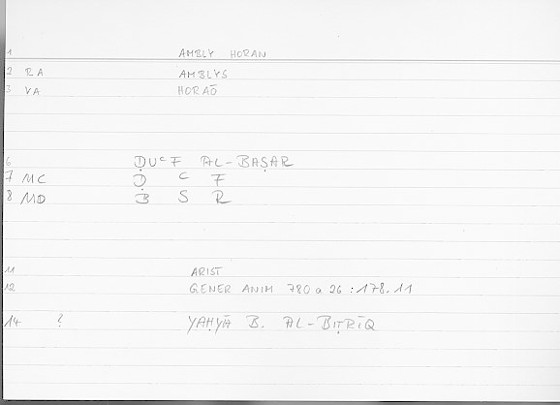 1 AMBLY HORAN
2 RA AMBLYS
3 VA HORAŌ
6 ḌUᶜF AL-BAṢAR
7 MC Ḍ C F
8 MD B Ṣ R
11 ARIST
12 GENER ANIM 780 a 26 : 178.11
14 ? YAḤYĀ B. AL-BIṬRĪQ